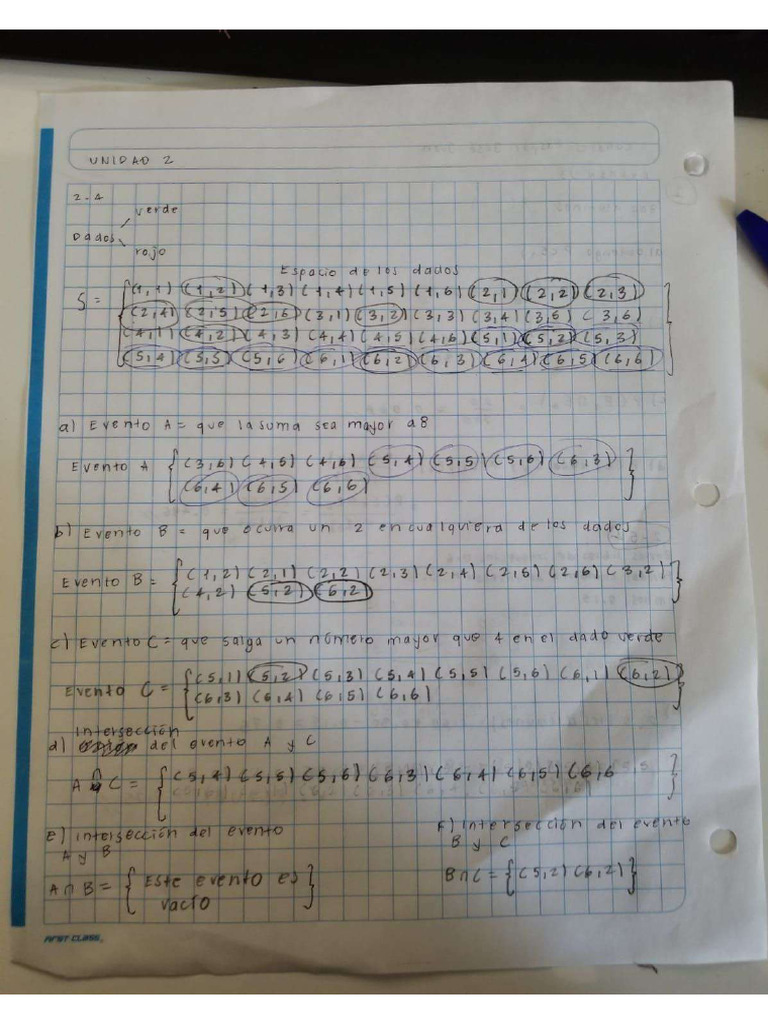 UNIDAD 2
2-4
verde
Dados
rojo
Espacio de los dados
S = { (1,1) (1,2) (1,3) (1,4) (1,5) (1,6) (2,1) (2,2) (2,3)
(2,4) (2,5) (2,6) (3,1) (3,2) (3,3) (3,4) (3,5) (3,6)
(4,1) (4,2) (4,3) (4,4) (4,5) (4,6) (5,1) (5,2) (5,3)
(5,4) (5,5) (5,6) (6,1) (6,2) (6,3) (6,4) (6,5) (6,6) }
a) Evento A = que la suma sea mayor a 8
Evento A { (3,6) (4,5) (4,6) (5,4) (5,5) (5,6) (6,3)
(6,4) (6,5) (6,6) }
b) Evento B = que ocurra un 2 en cualquiera de los dados
Evento B = { (1,2) (2,1) (2,2) (2,3) (2,4) (2,5) (2,6) (3,2)
(4,2) (5,2) (6,2) }
c) Evento C = que salga un número mayor que 4 en el dado verde
Evento C = { (5,1) (5,2) (5,3) (5,4) (5,5) (5,6) (6,1) (6,2)
(6,3) (6,4) (6,5) (6,6) }
Intersección
d) del evento A y C
A ∩ C = { (5,4) (5,5) (5,6) (6,3) (6,4) (6,5) (6,6 }
e) intersección del evento
A y B
A ∩ B = { Este evento es
vacío }
F) intersección del evento
B y C
B ∩ C = { (5,2) (6,2) }
FIRST CLASS